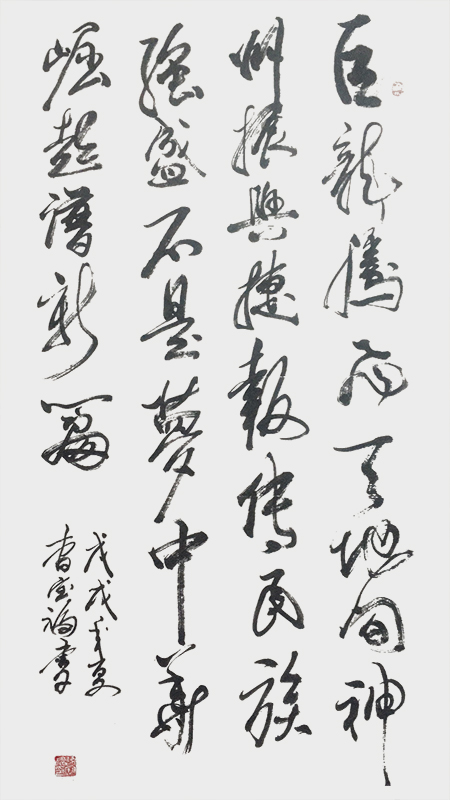 巨龍騰飛天地間神
州振興捷報傳民族
強盛不是夢中華
崛起譜新篇
戊戌夏
寶福書